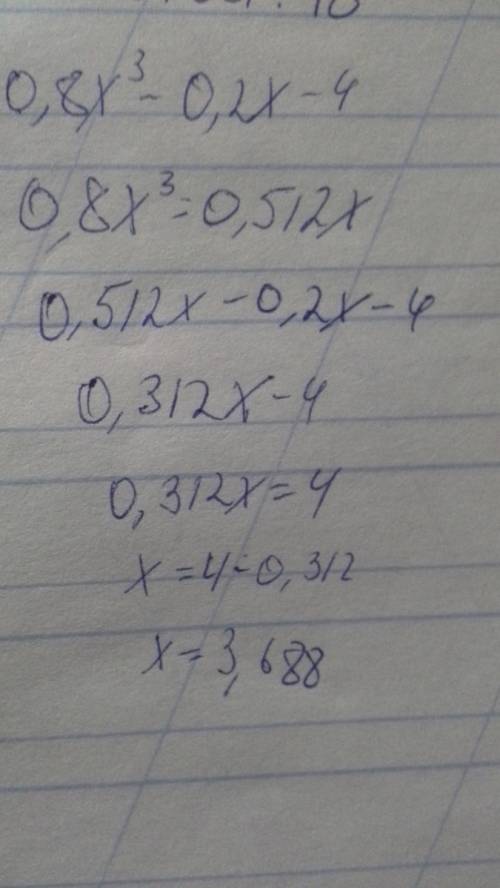 0,8x³ - 0,2x - 4
0,8x³ = 0,512x
0,512x - 0,2x - 4
0,312x - 4
0,312x = 4
x = 4 - 0,312
x = 3,688